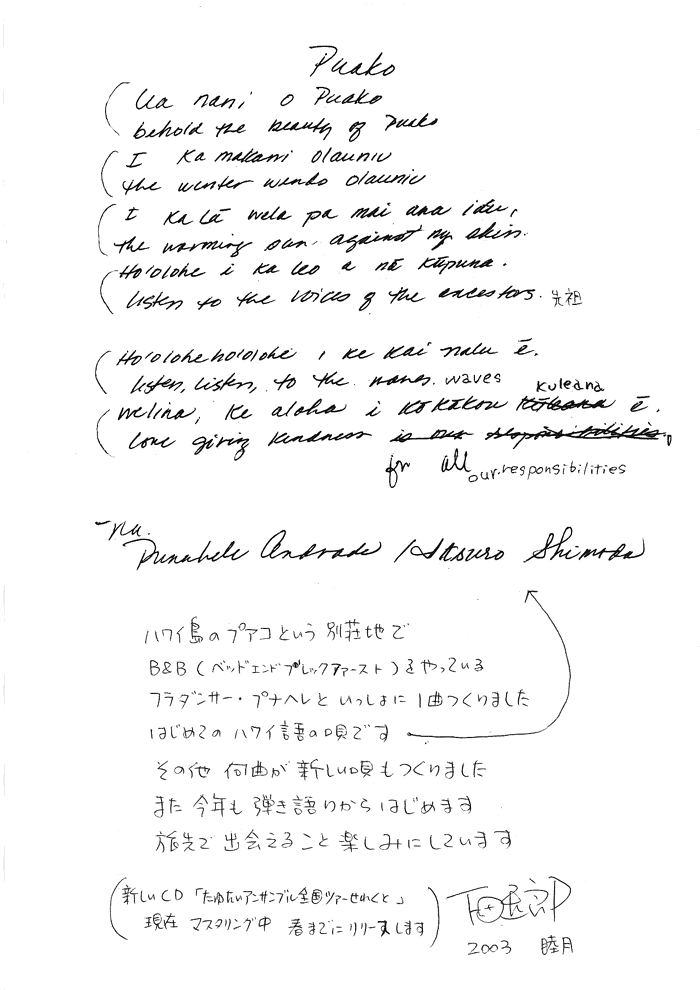 Puako
Ua nani o Puako
behold the beauty of Puako
I Ka makani Olauniu
the winter winds Olauniu
I Ka Lā wela pa mai ana iōu,
the warming sun against my skin.
Ho'olohe i ka leo a nā Kūpuna.
listen to the voices of the ancestors. 先祖
Ho'olohe hololohe i ke Kai nalu ē.
listen, listen, to the waves. waves
Kuleana
welina, Ke aloha i Kō Kākou ē.
love giving Kindness is our responsibilities.
for all our responsibilities
-na.
Punahele Andrade / Itsuro Shimoda
ハワイ島のプアコという 別荘地で
B&B (ベッドエンドブレックファースト) をやっている
フラダンサー・プナヘレと いっしょに 1曲つくりました
はじめての ハワイ語の唄です
その他 何曲か 新しい唄もつくりました
また 今年も 弾き語りから はじめます
旅先で 出会えること 楽しみにしています
(新しいCD 「たゆたいアンサンブル全国ツアーせれくと」
現在 マスタリング中 春までにリリースします)
2003 睦月